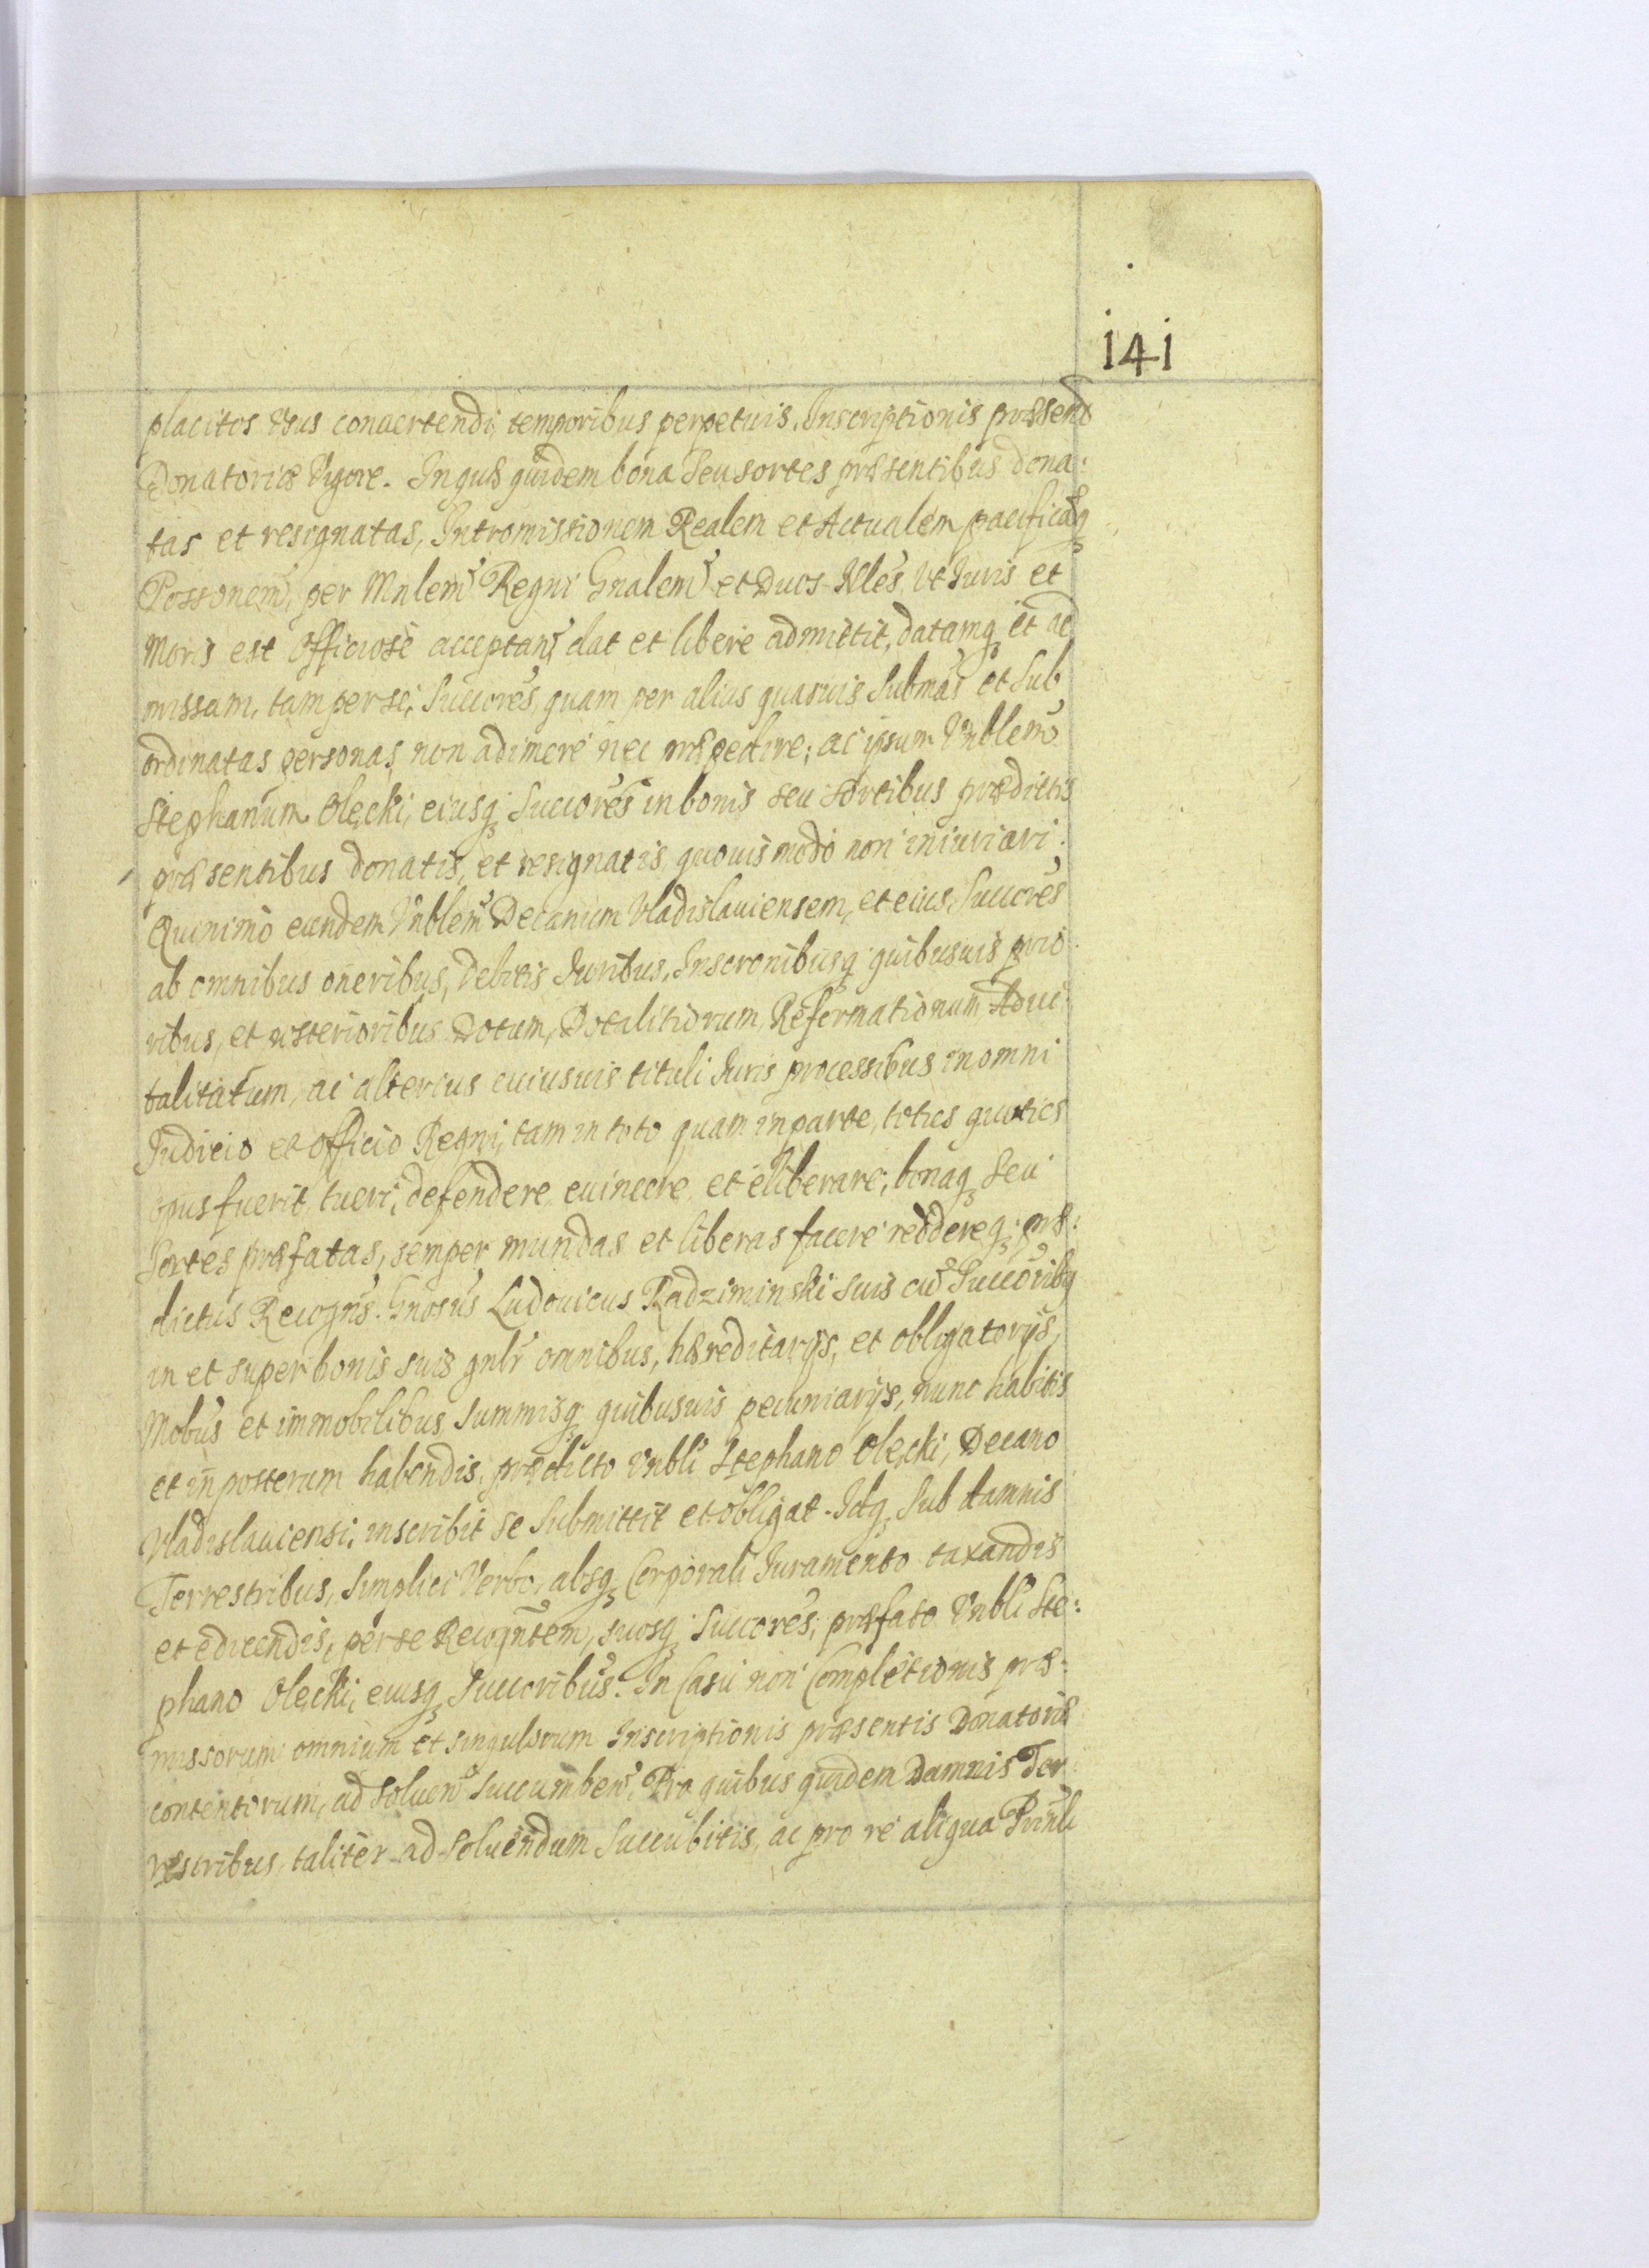 141
placitos Vsus conuertendi, temporibus perpetuis. Inscriptionis præsent
Donatoriæ Vigore. In quæ quidem bona Seu sortes præsentibus dona:
tas et resignatas, Intromissionem Realem et Actualem pacificaq
Possonem, per Mnlem Regni Gnalem et Duos Nles, vt Iuris et
Moris est Officiose acceptan dat et libere admittit, datamq et ad
missam, tam per se, Succores, quam per alias quasuis Submas et Sub
ordinatas personas, non adimere nec præpedire; ac ipsum Vnblem
Stephanum Olecki, eiusq Succores in bonis seu sortibus prædictis
præsentibus donatis, et resignatis quouis modo non iniuriari.
Quinimo eundem Vnblem Decanum Vladislauiensem, et eius Succores
ab omnibus oneribus, Debitis Iuribus, Inscronibusq quibusuis prio
ribus, et posterioribus Dotum, Dotalitiorum, Reformationum Adui
talitatum, ac alterius cuiusuis tituli Iuris processibus in omni
Iudicio et officio Regni, tam in toto quam in parte, toties quoties
opus fuerit, tueri, defendere euincere et eliberare, bonaq Seu
Sortes præfatas, semper mundas et liberas facere reddereq; præ:
dictus Recogns. Gnosus Ludouicus Radziminski suis cu Succoribq
in et super bonis suis gnlr omnibus, hæreditarijs, et obligatorijs,
Mobus et immobilibus Summisq quibusuis pecuniarijs, nunc habitis
et in posterum habendis, prædicto Vnbli Stephano Olecki, Decano
Vladislauiensi, inscribit se Submittit et obligat. Idq Sub damnis
Terrestribus, Simplici Verbo, absq Corporali Iuramento taxandis
et edicendis, per se Recogntem, suosq Succores, præfato Vnbli Ste:
phano Olecki, eiusq Succoribus. In Casu non Completionis præ:
missorum omnium et singulorum Inscriptionis præsentis Donatoriæ
contentorum, ad Soluen Succumben. Pro quibus quidem Damnis Ter
restribus, taliter ad Soluendum Succubitis, ac pro re aliqua Prinli